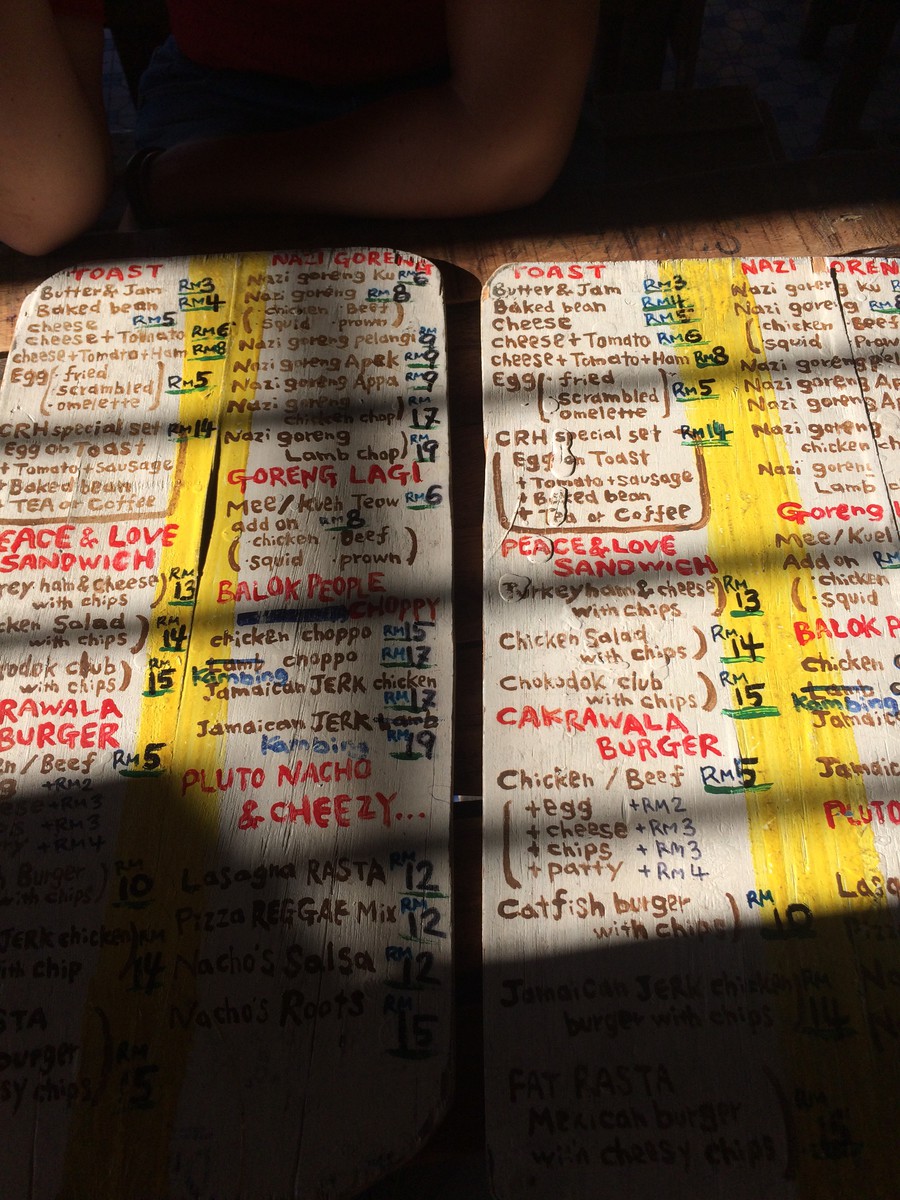 TOAST
Butter & Jam RM3
Baked bean RM4
cheese RM5
cheese + Tomato RM6
cheese + Tomato + Ham RM8
Egg ( · fried
· scrambled
· omelette ) RM5
CRH special set RM14
Egg on Toast
+ Tomato + sausage
+ Baked bean
TEA or Coffee
PEACE & LOVE
SANDWICH
rey ham & Cheese) RM13
with chips
cken Salad
with chips) RM14
odok club
with chips) RM15
RAWALA
BURGER
en / Beef RM5
+RM2
+RM3
+RM3
+RM4
Burger
with chips) RM10
JERK chicken
ith chip RM14
STA
burger
sy chips) RM15
NAZI GORENG
Nazi goreng Ku RM6
Nazi goreng RM8
( chicken Beef
squid prown )
Nazi goreng pelangi RM9
Nazi goreng Apak RM9
Nazi goreng Appa RM9
Nazi goreng
chicken chop) RM17
Nazi goreng
Lamb chop) RM19
GORENG LAGI
Mee / Kueh Teow RM6
add on RM8
( · chicken Beef
· squid prown )
BALOK PEOPLE
CHOPPY
chicken choppo RM15
Lamb choppo RM17
Kambing
Jamaican JERK chicken
RM17
Jamaican JERK Lamb
Kambing RM19
PLUTO NACHO
& CHEEZY...
Lasagna RASTA RM12
Pizza REGGAE Mix RM12
Nacho's Salsa RM12
Nacho's Roots RM15
TOAST
Butter & Jam RM3
Baked bean RM4
Cheese RM5
cheese + Tomato RM6
cheese + Tomato + Ham RM8
Egg ( · fried
· scrambled
omelette ) RM5
CRH special set RM14
Egg on Toast
+ Tomato + sausage
+ Baked bean
+ Tea or Coffee
PEACE & LOVE
SANDWICH
Turkey ham & cheese) RM13
with chips
Chicken Salad
with chips) RM14
Chokodok club
with chips) RM15
CAKRAWALA
BURGER
Chicken / Beef RM5
+ egg +RM2
+ cheese +RM3
+ chips +RM3
+ patty +RM4
Catfish burger
with chips) RM10
Jamaican JERK chicken
burger with chips RM14
FAT RASTA
Mexican burger
with cheesy chips) RM15
NAZI ORENG
Nazi goreng Ku RM
Nazi goreng RM8
( chicken Beef
squid Prow
Nazi goreng pel
Nazi goreng Ap
Nazi goreng Ap
Nazi goreng
chicken ch
Nazi goreng
Lamb c
Goreng L
Mee / Kuel
Add on RM
( · chicken
· squid
BALOK P
chicken
Lamb
Kambing
Jamaic
Jamaic
PLUTO
Lasa
Pizza
Na
N